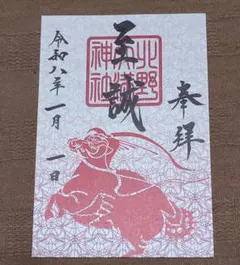 奉拝
至誠
北野
天満
神社
令和八年一月一日